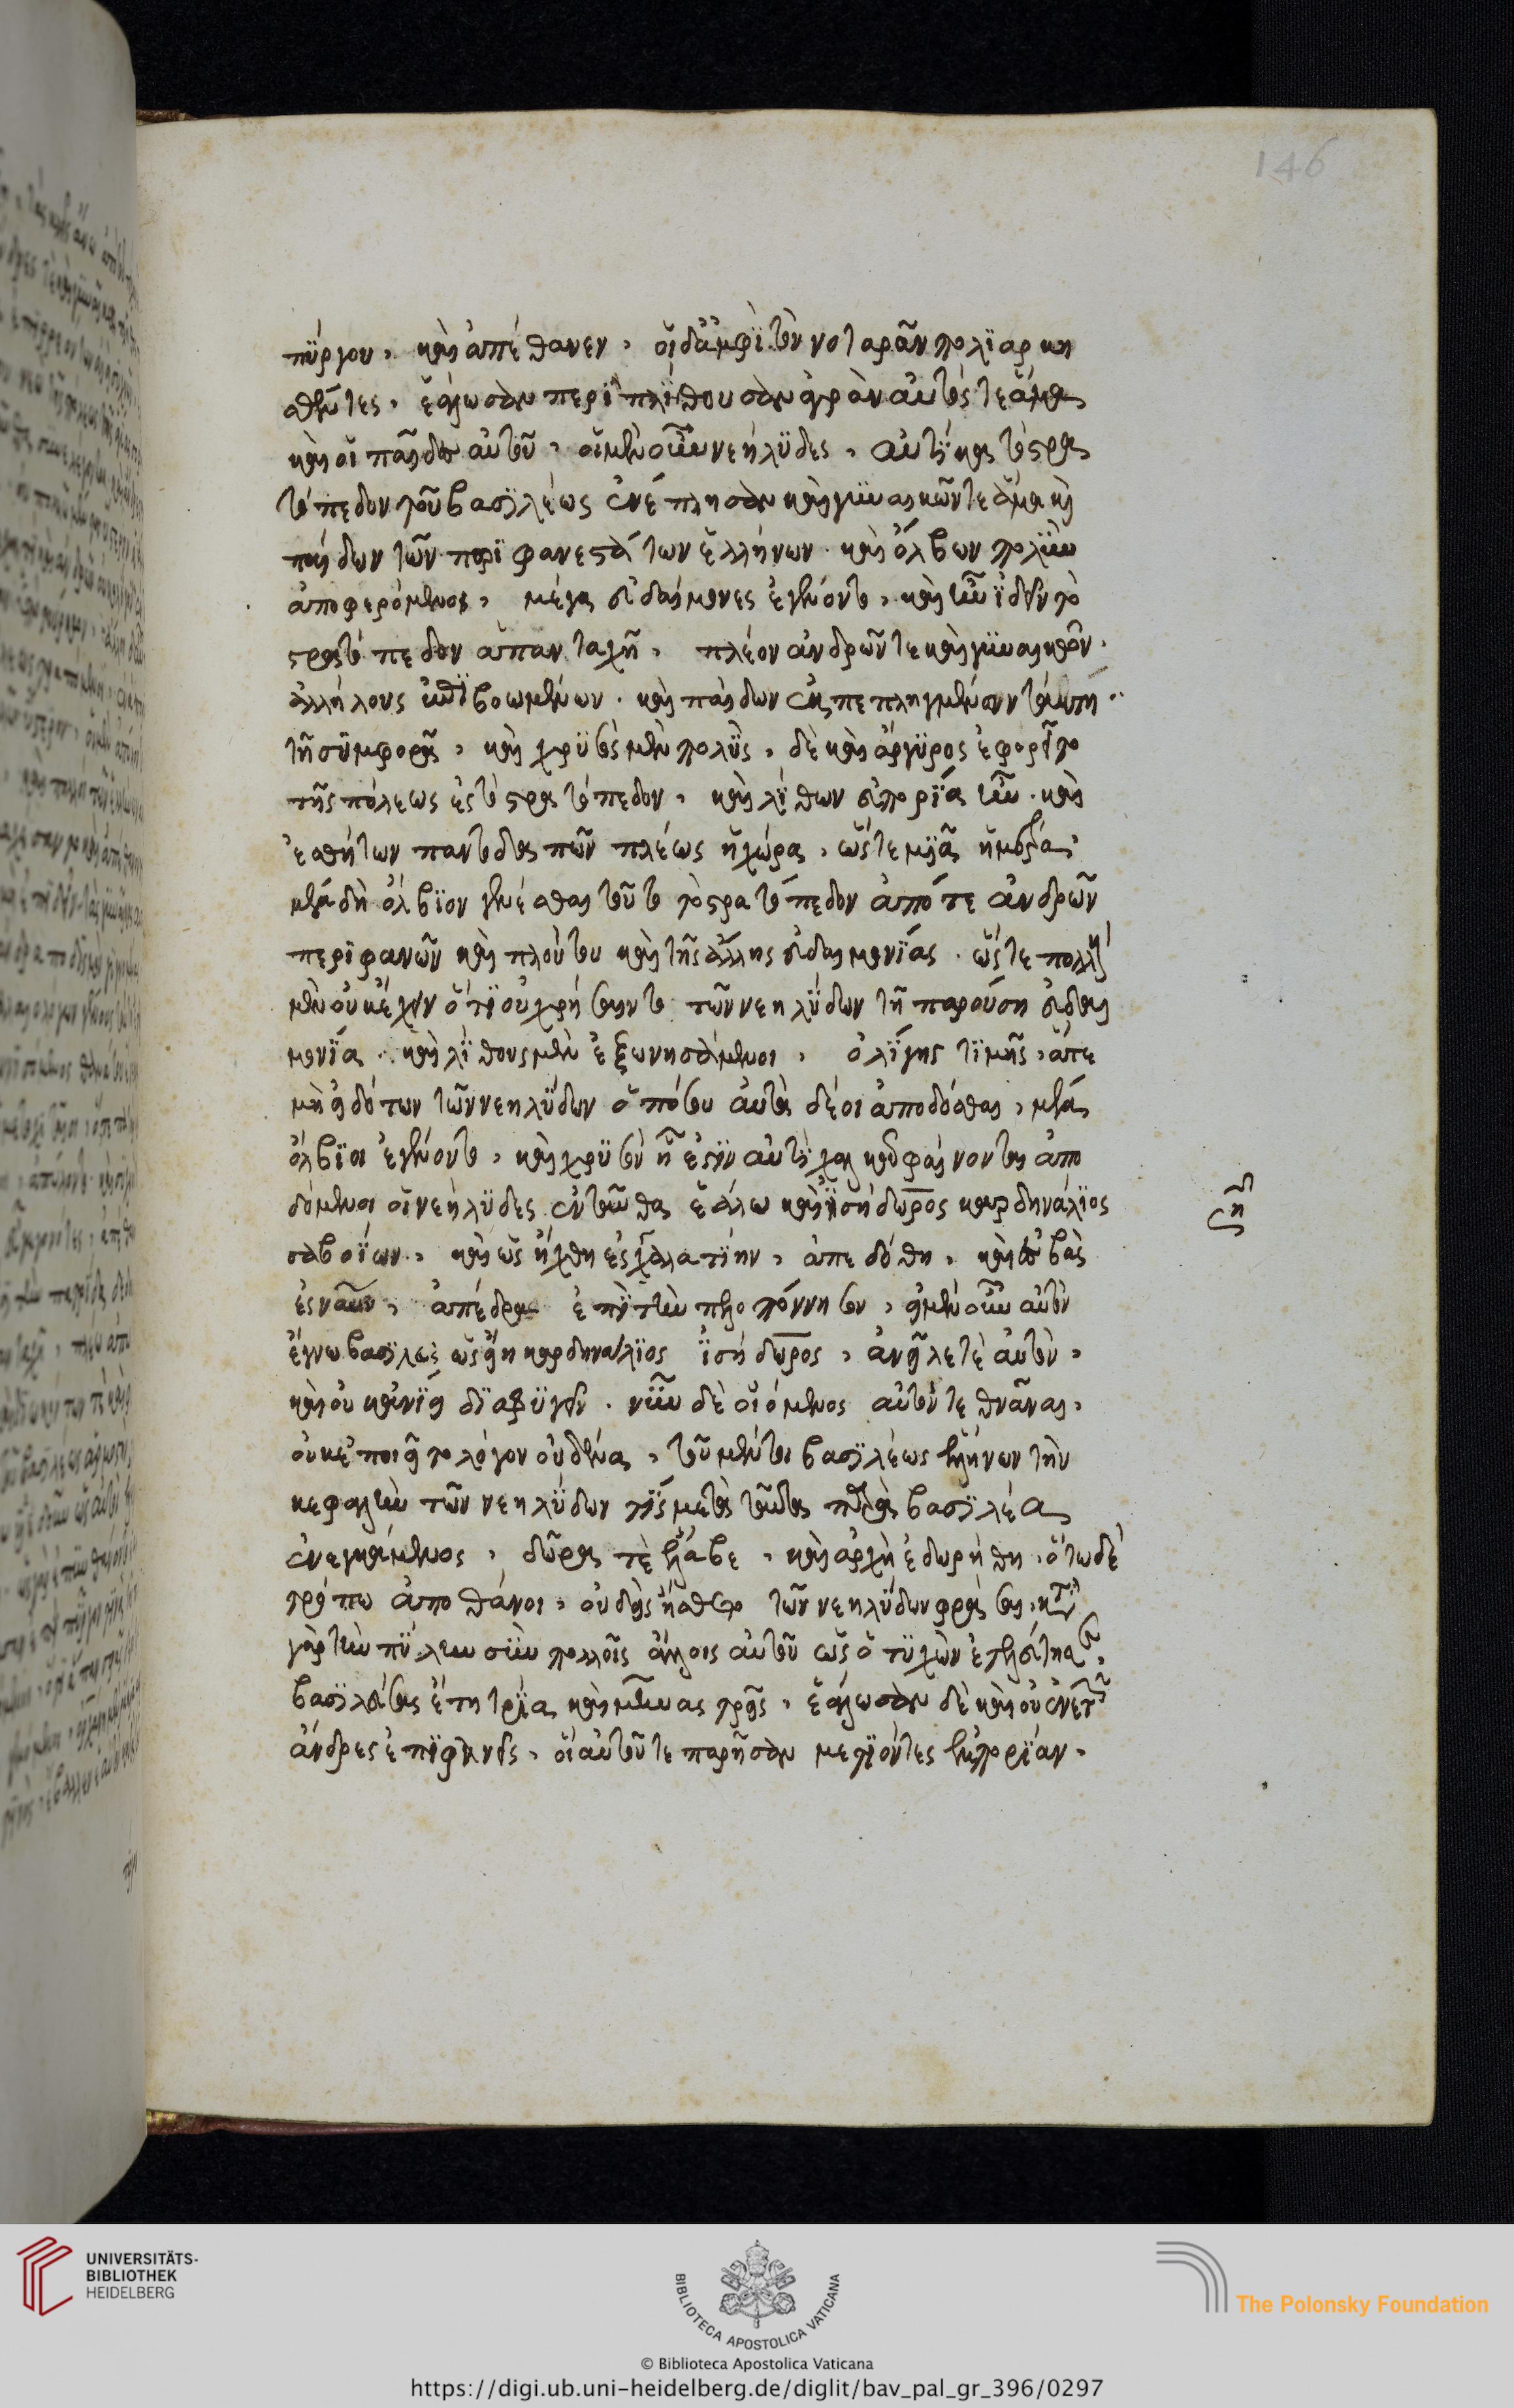 146
πύργου, καὶ ἀπέθανεν, οἱ δἀμφὶ τὸν νοταρᾶν πολϊαρκη
σθέντες, ἑάλωσαν περὶ πλήθουσαν ἀγορὰν αὐτός τε ἅμα
καὶ οἱ παῖδες αὐτοῦ, οἱ μὲν οὖν νεήλϋδες, αὐτίκα τὸ στρα
τόπεδον τοῦ βασϊλέως ἐνέπλησαν καὶ γϋναικῶν τε ἅμα κὶ
παίδων τῶν περϊφανεστάτων ἑλλήνων. καὶ ὄλβων πολὺν
ἀποφερόμενοι, μέγα εὐδαίμονες ἐγένοντο, καὶ ἦν ἰδεῖν τὸ
στρατόπεδον ἁπανταχῆ, πλέον ἀνδρῶν τε καὶ γϋναικῶν.
ἀλλήλους ἐπϊβοωμένων. καὶ παίδων ἐκπεπληγμένων ταύτη
τῆ συμφορᾶ, καὶ χρϋσός μὲν πολϋς, δὲ καὶ ἄργϋρος ἐφορεῖτο
τῆς πόλεως ἐς τὸ στρατόπεδον, καὶ λίθων εὐπορία ἦν. καὶ
ἐσθήτων παντοδαπῶν πλέως ἡ χώρα, ὥστε μϊᾶ ἡμέρα
μέγα δὴ ὄλβϊον γενέσθαι τοῦτο τὸ στρατόπεδον ἀπό τε ἀνδρῶν
περϊφανῶν καὶ πλούτου καὶ τῆς ἄλλης εὐδαιμονϊας. ὥστε πολλοὶ
μὲν οὐκ ἔχειν ὅ τϊ οὐ χρήσαιντο τῶν νεηλϋδων τῆ παρούση εὐδαι
μονϊα. καὶ λίθους μὲν ἐξωνησάμενοι, ὀλίγης τϊμῆς, ἅτε
μὴ εἰδότων τῶν νεηλϋδων ὁπόσου αὐτὰ δέοι ἀποδόσθαι, μέγα
ὄλβϊοι ἐγένοντο, καὶ χρϋσὸν ἦ ἐστὶν αὐτὶ χαλκοῦ φαίνονται ἀπο
δόμενοι οἱ νεήλϋδες ἐνταῦθα ἑάλω καὶ ἰσήδωρος καρδηνάλϊος
σαβοίων, καὶ ὡς ἤχθη ἐς χαλατίην, ἀπεδόθη, καὶ ἐμβὰς
ἐς ναῦν, ἀπέδρα ἐπὶ τὴν πελοπόννησον, εἰ μὲν οὖν αὐτὸν
ἔγνω βασϊλεὺς ὡς εἴη καρδηνάλϊος ἰσήδωρος, ἀνεῖλετὲ αὐτὸν,
καὶ οὐκ ἀνίει δϊαφϋγεῖν. νῦν δὲ οἰόμενος αὐτόν τεθνᾶναι,
οὐκ ἐποιεῖτο λόγον οὐδένα, τοῦ μέντοι βασϊλέως ἑλλήνων τὴν
κεφαλὴν τῶν νεηλϋδων τϊς μετὰ ταῦτα παρὰ βασϊλέα
ἐνεγκάμενος, δῶρα τὲ ἔλαβε, καὶ ἀρχὴ ἐδωρήθη, ὅτω δὲ
τρόπω ἀποθάνοι, οὐδεὶς ἤσθετο τῶν νεηλϋδων φράσαι, κατὰ
γὰρ τὴν πύλην σὺν πολλοῖς ἄλλοις αὐτοῦ ὡς ὁ τϋχὼν ἐτελεύτησε,
βασϊλεύσας ἔτη τρία καὶ μῆνας τρεῖς, ἑάλωσαν δὲ καὶ οὐ ἐνετῶν
ἄνδρες ἐπϊφανεῖς, οἳ αὐτοῦ τε παρῆσαν μετϊόντες ἐμπορϊαν,
ση
UNIVERSITÄTS-
BIBLIOTHEK
HEIDELBERG
BIBLIOTECA APOSTOLICA VATICANA
The Polonsky Foundation
© Biblioteca Apostolica Vaticana
https://digi.ub.uni-heidelberg.de/diglit/bav_pal_gr_396/0297